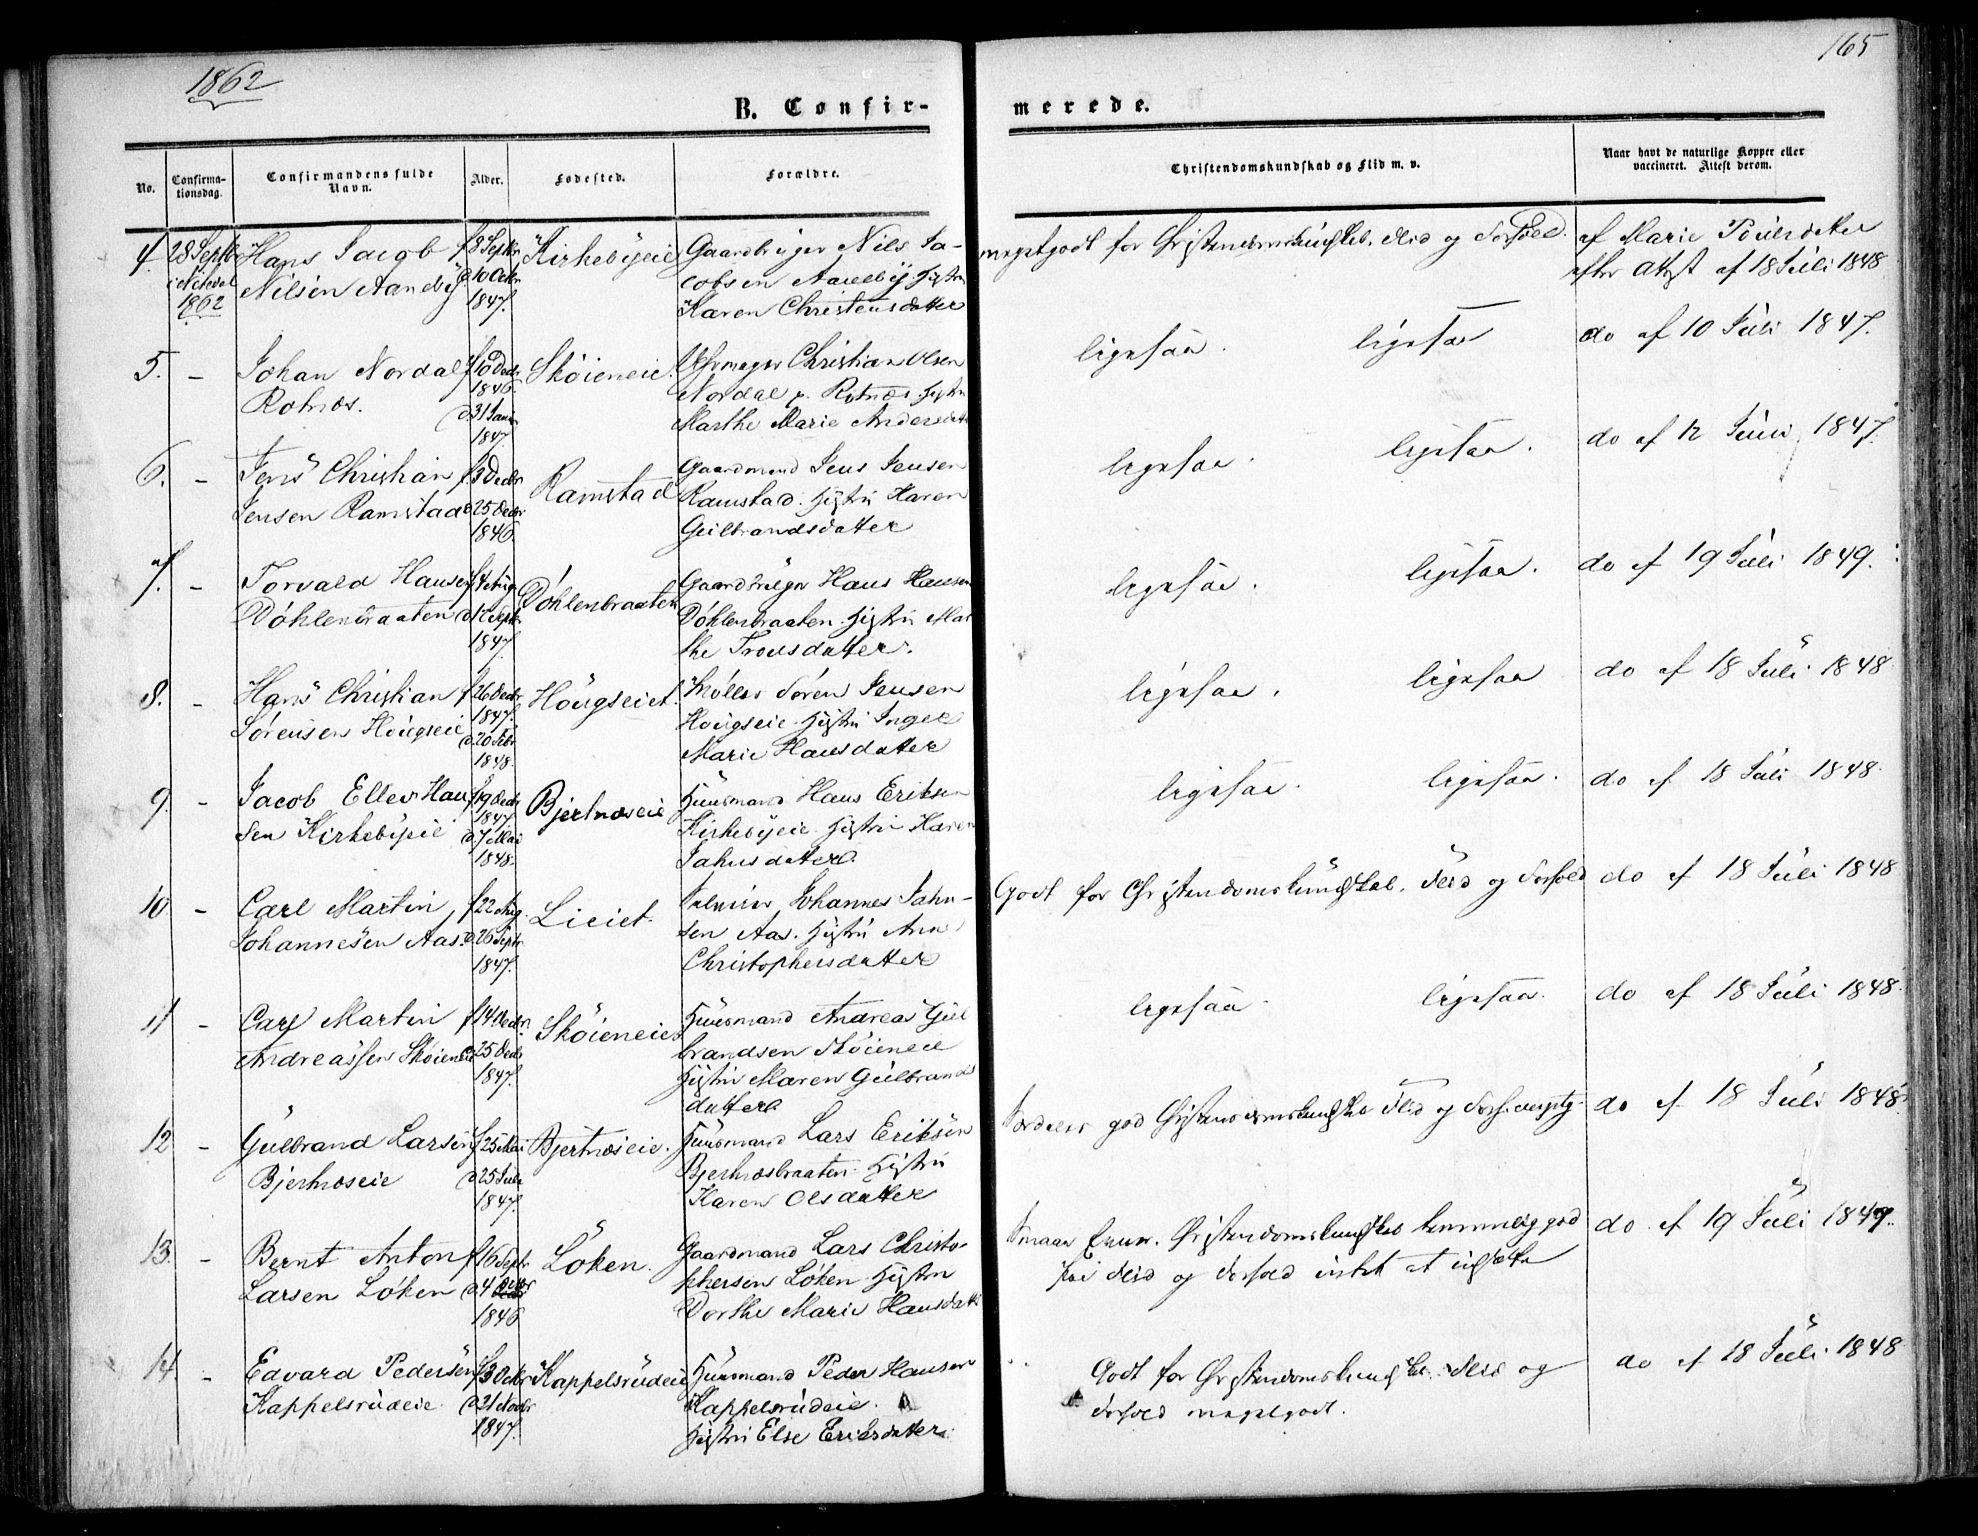 1862
165
B. Confir-
merede.
No.
Confirma-
tionsdag.
Confirmandens fulde
Navn.
Alder.
Fødested.
Forældre.
Christendomskundskab og Flid m. v.
Naar havt de naturlige Kopper eller
vaccineret. Attest derom.
4. 28 Septbr Hans Jacob f 8 Septbr Kirkebyeie Gaardbruger Nils Ja- megetgodt for Christendomskundskab, Flid og Forhold. af Marie Poulsdatter
Nilsen Aandby d 10 Octbr cobsen Aandby. Hustru efter Attest af 18 Juli 1848
1862 1847. Karen Christensdatter
5. - Johan Nordal f 10 Decbr Skøieneie. Christian Olsen ligesaa. ligesaa do af 10 Juli 1847.
Rotnæs. 1846. Nordal p. Rotnæs. Hustru
d 31 Januar Marthe Marie Andersdatt
1847.
6. - Jens Christian f 3 Decbr Ramstad Gaardmand Jens Jensen ligesaa. ligesaa. do af 12 Juni 1847.
Jensen Ramstad d 25 Decbr Ramstad. Hustru Karen
1846. Gulbrandsdatter
7. - Torvald Hansen f 4 Aug Døhlenbraaten Gaardbruger Hans Hansen ligesaa. ligesaa. do af 19 Juli 1849.
Døhlenbraaten d 12 Septbr Døhlenbraaten. Hustru Mar
1847. the Trondsdatter.
8. - Hans Christian f 26 Decbr Høugseiet. Møller Søren Jensen ligesaa. ligesaa do af 18 Juli 1848
Sørensen Høugseie 1847. Høugseie. Hustru Inger
d. 20 Febr Marie Hansdatter
1848.
9. - Jacob Ellev Han f 19 Decbr Bjertnæseie Huusmand Hans Eriksen ligesaa. ligesaa. do af 18 Juli 1848.
sen Kirkebyeie 1847 Kirkebyeie. Hustru Karen
d. 7 Mai Jahnsdatter.
1848.
10 - Carl Martin f 22 Aug. Lieiet. Johannes Jahn- Godt for Christendomskundskab, Flid og Forhold do af 18 Juli 1848
Johannesen Aas. d. 26 Septr sen Aas. Hustru Anne
1847. Christophersdatter
11 - Carl Martin f 14 Decbr Skøieneiet Huusmand Andreas Gul ligesaa. ligesaa. do af 18 Juli 1848.
Andreassen Skøieneie d 25 Decbr brandsen Skøieneie
1847. Hustru Maren Gulbrands
datter.
12 - Gulbrand Larsen f 25 Mai Bjertnæseie. Huusmand Lars Eriksen Særdeles god Christendomskundskab Flid og Forh. do af 18 Juli 1848.
Bjertnæseie d 25 Juli Bjertnæsbraaten. Hustru
1847. Karen Olsdatter
13. - Bernt Anton f 16 Septbr Løken. Gaardmand Lars Christo- Smaa Evner. Christendomskundskab temmelig god do. af 19 Juli 1849.
Larsen Løken d. 4 phersen Løken. Hustru Flid og Forhold intet at udsætte
1846 Dorthe Marie Hansdatt
14 - Edvard Pedersen f 3 Octbr Kappelsrudeie Huusmand Peder Hansen Godt for Christendomskundskab. Flid og do af 18 Juli 1848
Kappelsrudeie. d 21 Novbr Kappelsrudeie. Forhold megetgodt.
1847. Hustru Else Eriksdatter.